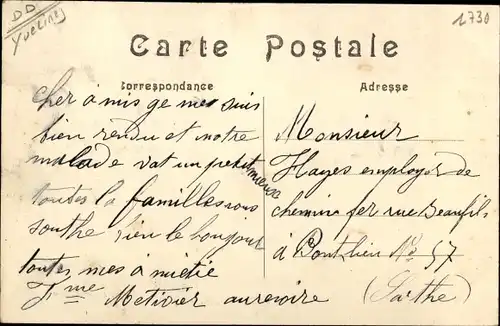 DD
Yvelines
1730
Carte Postale
Correspondance
Adresse
cher à mis ge mes suis
bien rendu et notre
malade vat un petit mieux
toutes la familles vous
southe bien le bonjour
toutes mes à mietié
Fme Metivier aurevoire
Monsieur
Hayes employer de
chemin fer rue Beaufils
à Pontlieu No 57
(Sarthe)